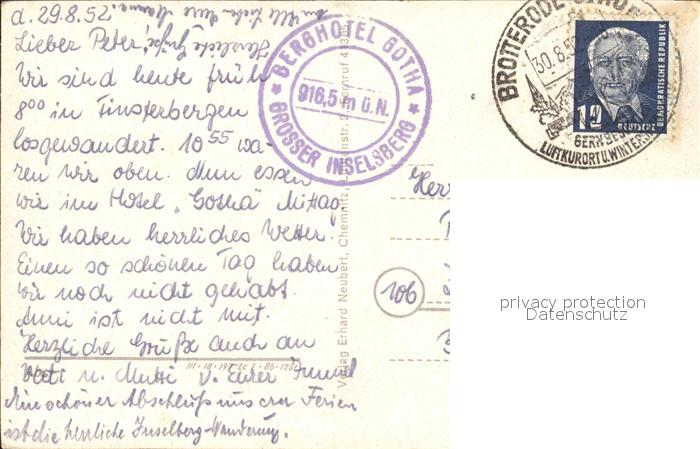 d. 29.8.52
Herzliche Grüße
Lieber Peter!
Wir sind heute früh
8⁰⁰ in Finsterbergen
losgewandert. 10⁵⁵ wa-
ren wir oben. Nun essen
wir im Hotel „Gotha" Mittag.
Wir haben herrliches Wetter.
Einen so schönen Tag haben
wir noch nicht gehabt.
Anni ist nicht mit.
Herzliche Grüße auch an
Vati u. Mutti v. Eurer
Ein schöner Abschluß unserer Ferien
ist die herrliche Inselberg-Wanderung.
BERGHOTEL GOTHA
916,5 m ü. N.
GROSSER INSELSBERG
Verlag Erhard Neubert, Chemnitz,
BROTTERODE
30.8.5
LUFTKURORT U. WINTERS
DEUTSCHE
DEMOKRATISCHE REPUBLIK
106
privacy protection
Datenschutz